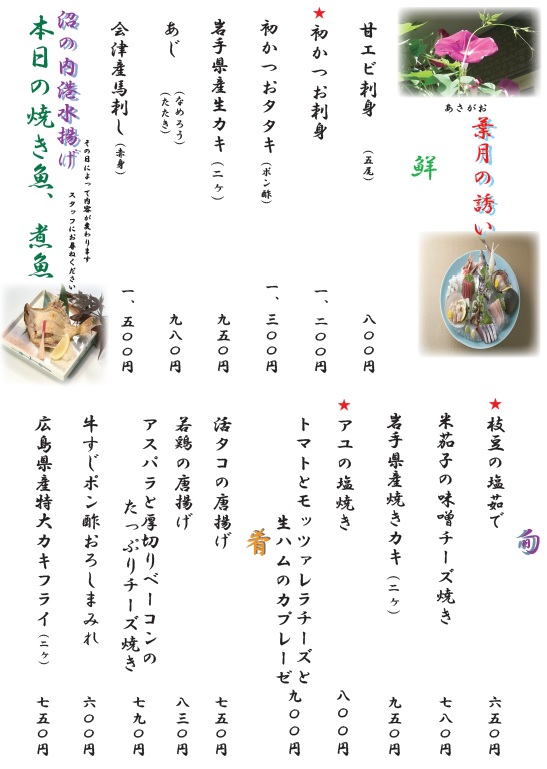 あさがお
葉月の誘い
鮮
甘エビ刺身（五尾）　八〇〇円
★初かつお刺身　一、二〇〇円
初かつおタタキ（ポン酢）　一、三〇〇円
岩手県産生カキ（二ヶ）　九五〇円
あじ（なめろう）（たたき）　九八〇円
会津産馬刺し（赤身）　一、五〇〇円
沼の内港水揚げ
本日の焼き魚、煮魚
その日によって内容が変わります
スタッフにお尋ねください
旬
★枝豆の塩茹で　六五〇円
米茄子の味噌チーズ焼き　七八〇円
岩手県産焼きカキ（二ヶ）　九五〇円
★アユの塩焼き　八〇〇円
トマトとモッツァレラチーズと
生ハムのカプレーゼ　九〇〇円
肴
活タコの唐揚げ　七五〇円
若鶏の唐揚げ　八三〇円
アスパラと厚切りベーコンの
たっぷりチーズ焼き　七九〇円
牛すじポン酢おろしまみれ　六〇〇円
広島県産特大カキフライ（二ヶ）　七五〇円